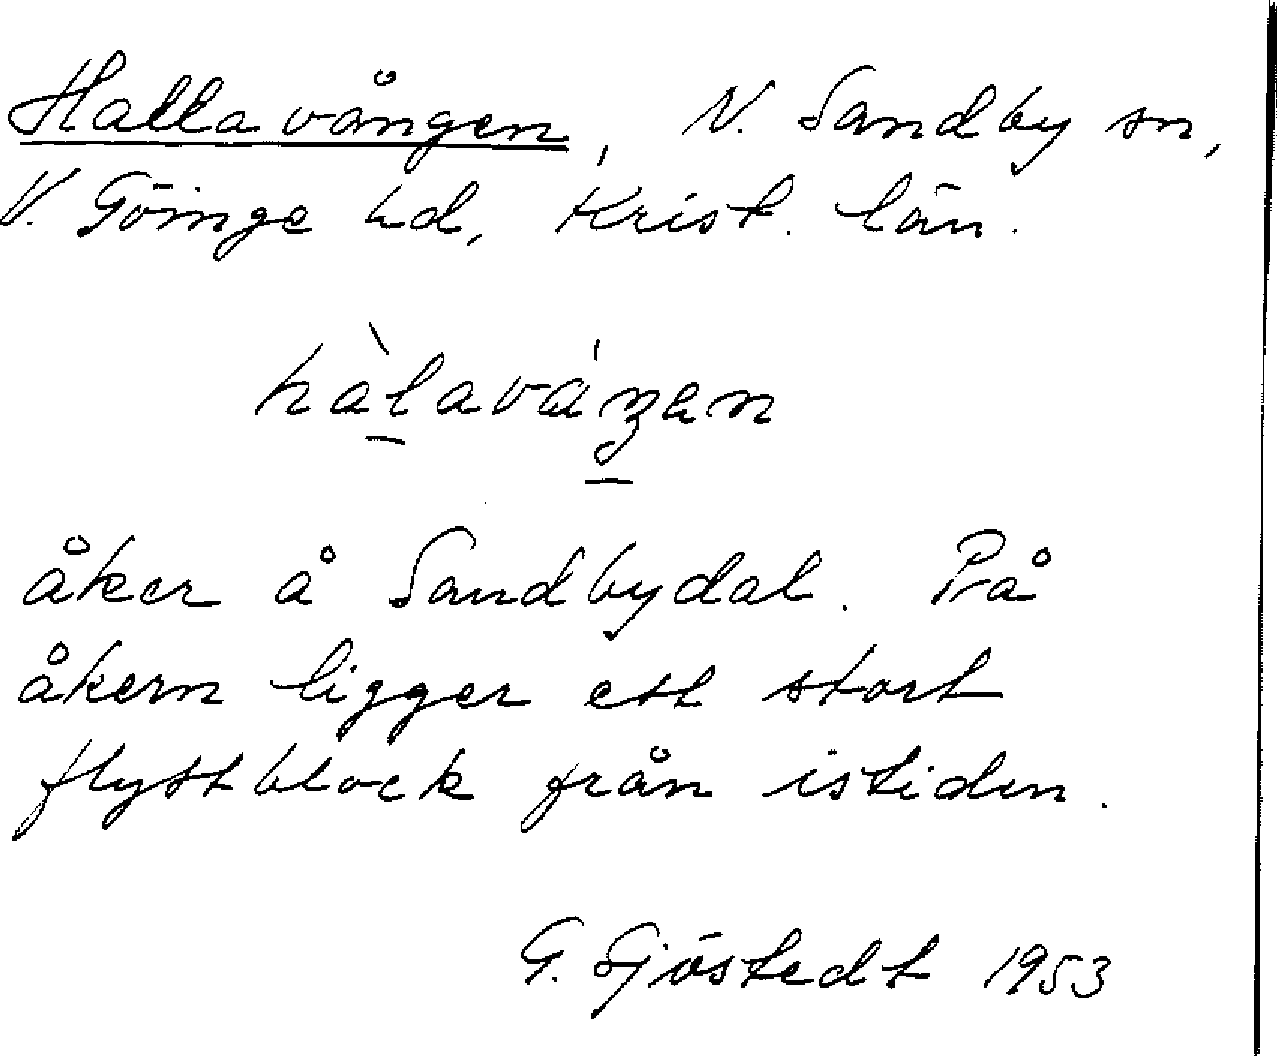 Hallavången, N. Sandby sn,
V. Göinge hd, Krist. län.
hàl̠aváŋ̠en
åker å Sandbydal. På
åkern ligger ett stort
flyttblock från istiden.
G. Sjöstedt 1953